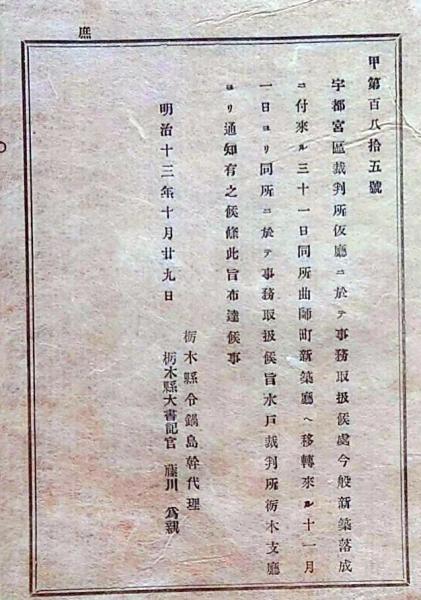 庶
甲第百八拾五號
宇都宮區裁判所仮廳ニ於テ事務取扱候處今般新築落成
ニ付來ル三十一日同所曲師町新築廳ヘ移轉來ル十一月
一日ヨリ同所ニ於テ事務取扱候旨水戸裁判所栃木支廳
ヨリ通知有之候條此旨布達候事
明治十三年十月廿九日
栃木縣令鍋島幹代理
栃木縣大書記官 藤川為親